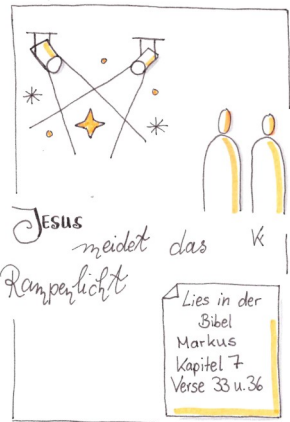 Jesus
meidet das
Rampenlicht
Lies in der
Bibel
Markus
Kapitel 7
Verse 33 u. 36